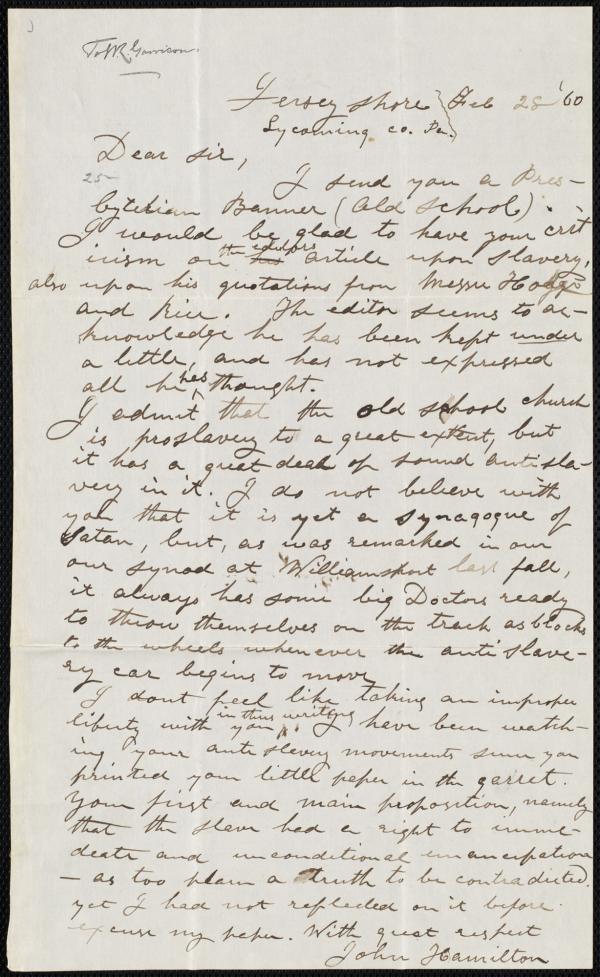 To W. L. Garrison.
Jersey Shore Feb 28 '60
Lycoming co. Pa.
Dear Sir,
25
I send you a Pres-
byterian Banner (Old School).
I would be glad to have your crit
icism on the editors article upon slavery,
also upon his quotations from Messrs Hodge
and Rice. The editor seems to ac-
knowledge he has been kept under
a little, and has not expressed
all he has thought.
I admit that the old school church
is proslavery to a great extent, but
it has a great deal of sound antisla-
very in it. I do not believe with
you that it is yet a synagogue of
Satan, but, as was remarked in our
our synod at Williamsport last fall,
it always has some big Doctors ready
to throw themselves on the track as blocks
to the wheels whenever the anti slave-
ry car begins to move
I dont feel like taking an improper
liberty with you in thus writing I have been watch-
ing your anti slavery movements since you
printed your little paper in the garret.
Your first and main proposition, namely
that the slave had a right to imme-
deate and unconditional emancipation
— as too plain a truth to be contradicted.
yet I had not reflected on it before.
excuse my paper. With great respect
John Hamilton